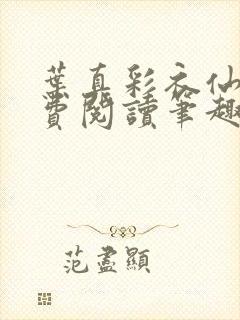 葉真彩衣仙
費閱讀筆趣
范盡顯